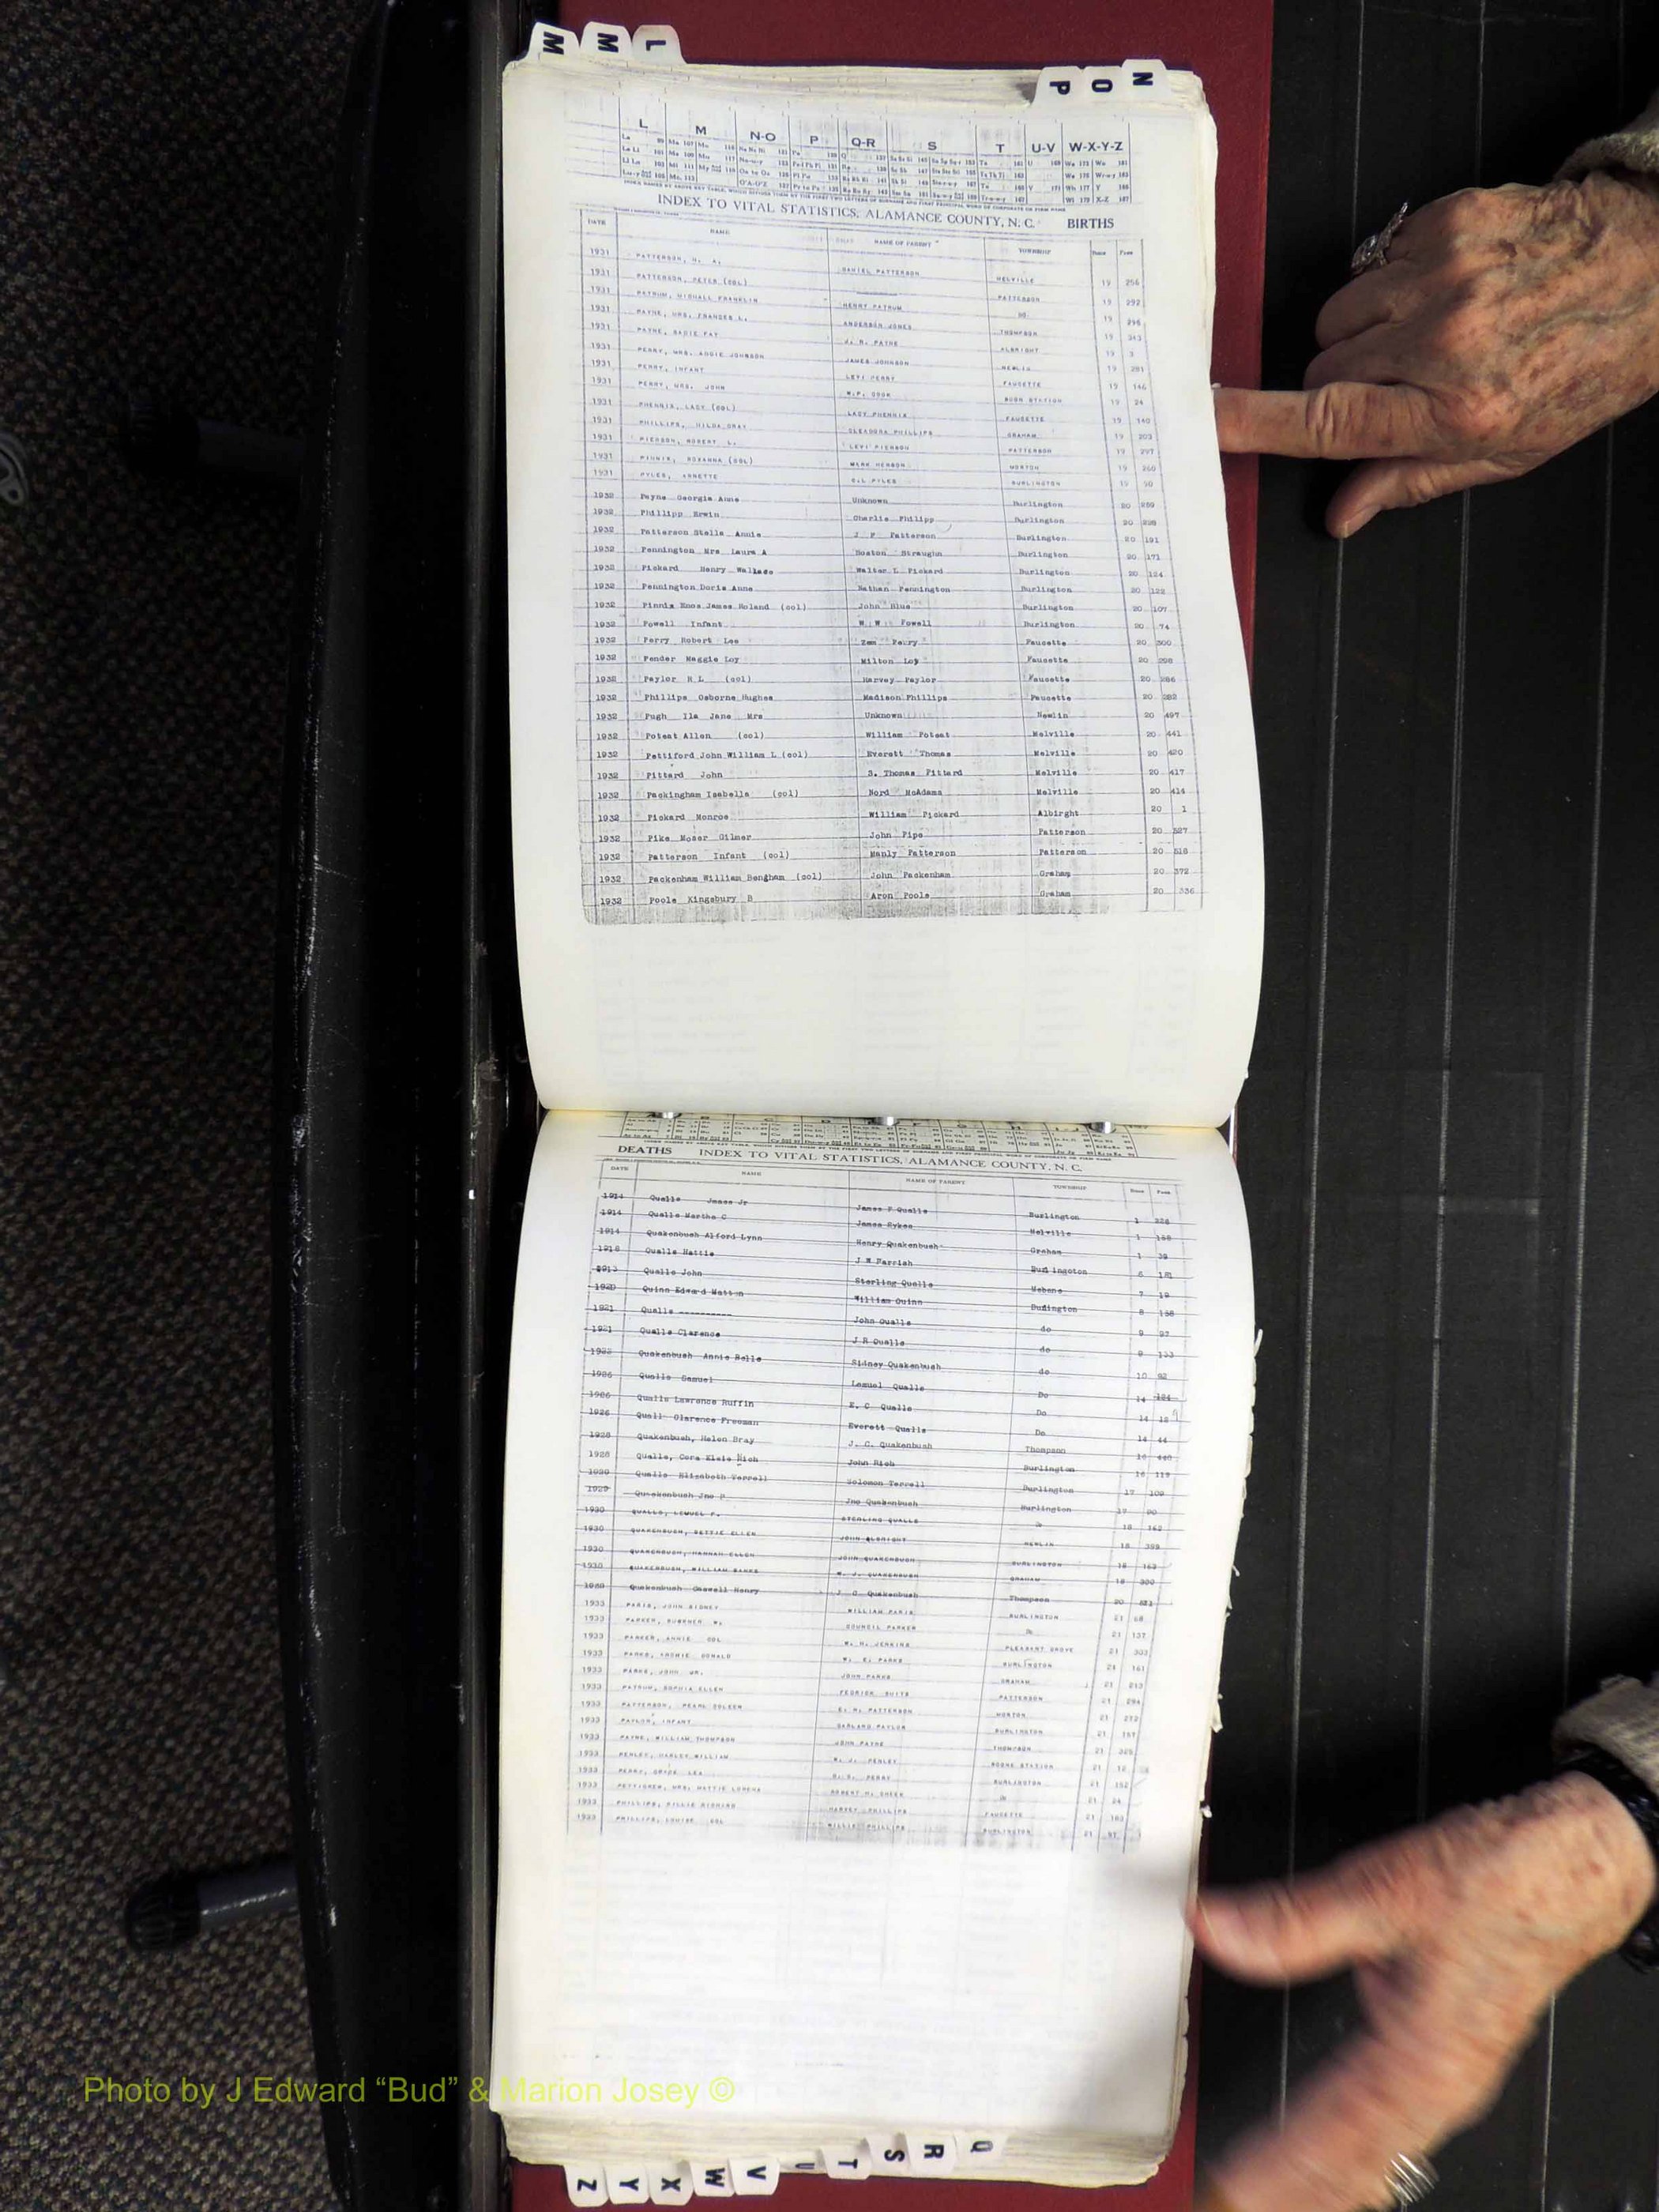 M M L
P O N
L M N-O P Q-R S T U-V W-X-Y-Z
INDEX TO VITAL STATISTICS, ALAMANCE COUNTY, N. C. BIRTHS
DATE NAME NAME OF PARENT TOWNSHIP Book Page
1931 PATTERSON, H. A. DANIEL PATTERSON MELVILLE 19 256
1931 PATTERSON, PETER (COL) PATTERSON 19 292
1931 PATRUM, MICHALL FRANKLIN HENRY PATRUM DO 19 296
1931 PAYNE, MRS. FRANCES L. ANDERSON JONES THOMPSON 19 343
1931 PAYNE, SADIE FAY J. R. PAYNE ALBRIGHT 19 3
1931 PERRY, MRS. ADDIE JOHNSON JAMES JOHNSON NEWLIN 19 281
1931 PERRY, INFANT LEVI PERRY FAUCETTE 19 146
1931 PERRY, MRS. JOHN W.P. COOK BOON STATION 19 24
1931 PHENNIS, LACY (COL) LACY PHENNIX FAUCETTE 19 140
1931 PHILLIPS, HILDA GRAY CLEADORA PHILLIPS GRAHAM 19 203
1931 PIERSON, ROBERT L. LEVI PIERSON PATTERSON 19 297
1931 PINNIX, ROXANNA (COL) MARK HERSON MORTON 19 260
1931 PYLES, ANNETTE C.L PYLES BURLINGTON 19 50
1932 Payne Georgia Anne Unknown Burlington 20 259
1932 Phillipp Erwin Charlie Philipp Burlington 20 228
1932 Patterson Stella Annie J F Patterson Burlington 20 191
1932 Pennington Mrs Laura A Boston Straughn Burlington 20 171
1932 Pickard Henry Wallace Walter L Pickard Burlington 20 124
1932 Pennington Doris Anne Nathan Pennington Burlington 20 122
1932 Pinnix Enos James Roland (col) John Blue Burlington 20 107
1932 Powell Infant W W Powell Burlington 20 74
1932 Perry Robert Lee Zem Perry Faucette 20 300
1932 Pender Maggie Loy Milton Loy Faucette 20 298
1932 Paylor R L (col) Harvey Paylor Faucette 20 286
1932 Phillips Osborne Hughes Madison Phillips Faucette 20 282
1932 Pugh Ila Jane Mrs Unknown Newlin 20 497
1932 Poteat Allen (col) William Poteat Melville 20 441
1932 Pettiford John William L (col) Everett Thomas Melville 20 420
1932 Pittard John S. Thomas Pittard Melville 20 417
1932 Packingham Isabella (col) Nord McAdams Melville 20 414
1932 Pickard Monroe William Pickard Albirght 20 1
1932 Pike Moser Gilmer John Pipe Patterson 20 527
1932 Patterson Infant (col) Manly Patterson Patterson 20 518
1932 Packenham William Bengham (col) John Packenham Graham 20 372
1932 Poole Kingsbury B Aron Poole Graham 20 336
DEATHS INDEX TO VITAL STATISTICS, ALAMANCE COUNTY, N. C.
DATE NAME NAME OF PARENT TOWNSHIP Book Page
1914 Qualls James Jr James F Qualls Burlington 1 226
1914 Qualls Martha C James Sykes Melville 1 158
1914 Quakenbush Alford Lynn Henry Quakenbush Graham 1 39
1918 Qualls Hattie J W Parrish Burlington 6 181
Qualls John Sterling Qualls Mebane 7 19
1920 Quinn Edward Watton William Quinn Burlington 8 138
1921 Qualls ---------- John Qualls do 9 97
1921 Qualls Clarence J R Qualls do 9 133
1922 Quakenbush Annie Belle Sidney Quakenbush do 10 92
1926 Qualls Samuel Lemuel Qualls Do 14 124
1926 Qualls Lawrence Ruffin E. C Qualls Do 14
1926 Quall Clarence Freeman Everett Qualls Do 14 44
1928 Quakenbush, Helen Bray J. C. Quakenbush Thompson 16 440
1928 Qualls, Cora Elsie Rich John Rich Burlington 16 119
1929 Qualls Elizabeth Terrell Solomon Terrell Burlington 17 109
1929 Quackenbush Jno P Jno Quakenbush Burlington 17 90
1930 QUALLS, LEMUEL F. STERLING QUALLS DO 18 162
1930 QUAKENBUSH, BETTIE ELLEN JOHN ALBRIGHT NEWLIN 18 359
1930 QUAKENBUSH, HANNAH ELLEN JOHN QUAKENBUSH BURLINGTON 18 163
1930 QUAKENBUSH, WILLIAM BANKS W. J. QUAKENBUSH GRAHAM 18 300
Quakenbush Caswell Henry J C Quakenbush Thompson 20
1933 PARIS, JOHN SIDNEY WILLIAM PARIS BURLINGTON 21 68
1933 PARKER, BURKNER W. COUNCIL PARKER DO 21 137
1933 PARKER, ANNIE COL W. H. JENKINS PLEASANT GROVE 21 303
1933 PARKS, ARCHIE DONALD W. E. PARKS BURLINGTON 21 161
1933 PARKS, JOHN JR. JOHN PARKS GRAHAM 21 213
1933 PATRUM, SOPHIA ELLEN FEDRICK SUITS PATTERSON 21 294
1933 PATTERSON, PEARL COLEEN E. R. PATTERSON MORTON 21 272
1933 PAYLOR, INFANT GARLAND PAYLOR BURLINGTON 21 157
1933 PAYNE, WILLIAM THOMPSON JOHN PAYNE THOMPSON 21 325
1933 PENLEY, HARLEY WILLIAM W. J. PENLEY BOONE STATION 21 12
1933 PERRY, GRADE LEA R. S. PERRY BURLINGTON 21 152
1933 PETTIGREW, MRS. HETTIE LORENA ROBERT M. CHEEK DO 21 24
1933 PHILLIPS, BILLIE RICHARD HARVEY PHILLIPS FAUCETTE 21 183
1933 PHILLIPS, LOUISE COL WILLIE PHILLIPS BURLINGTON 21 91
Photo by J Edward “Bud” & Marion Josey ©
Z Y X W V U T S R Q